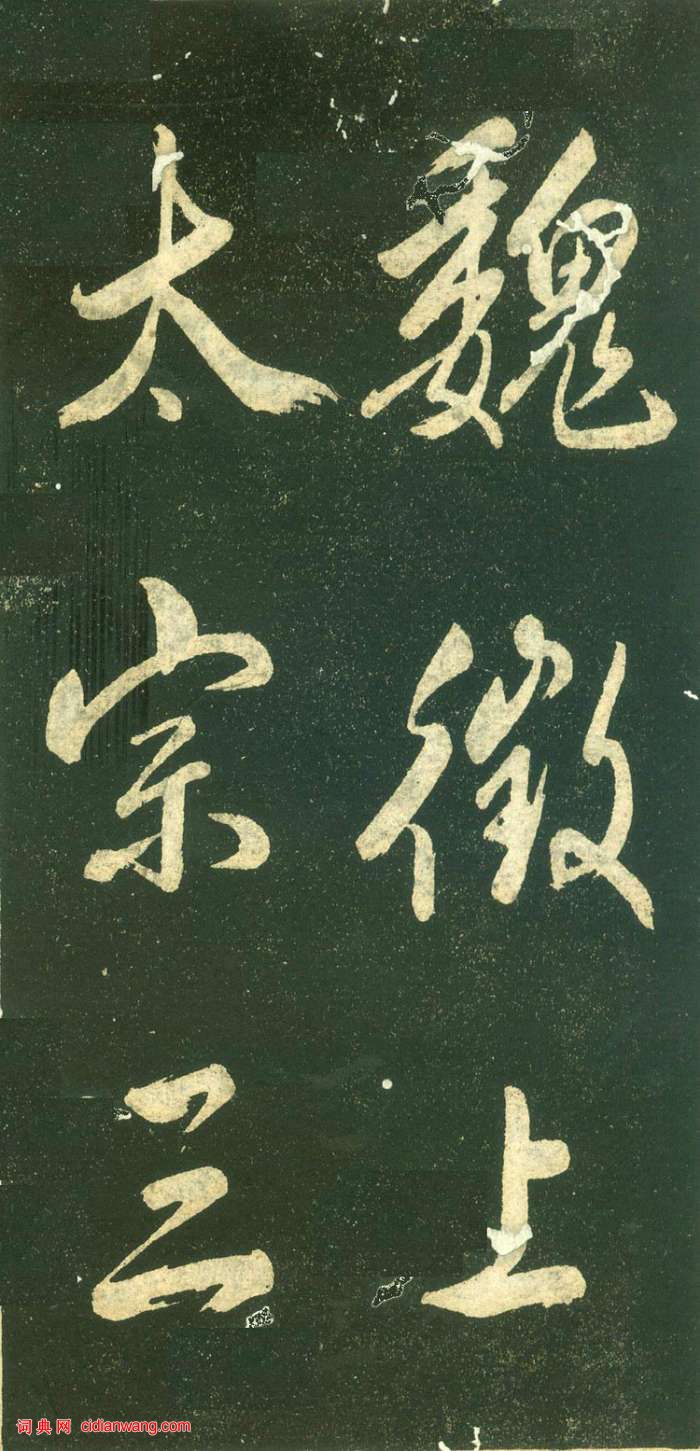 魏徵上
太宗三
词典网 cidianwang.com